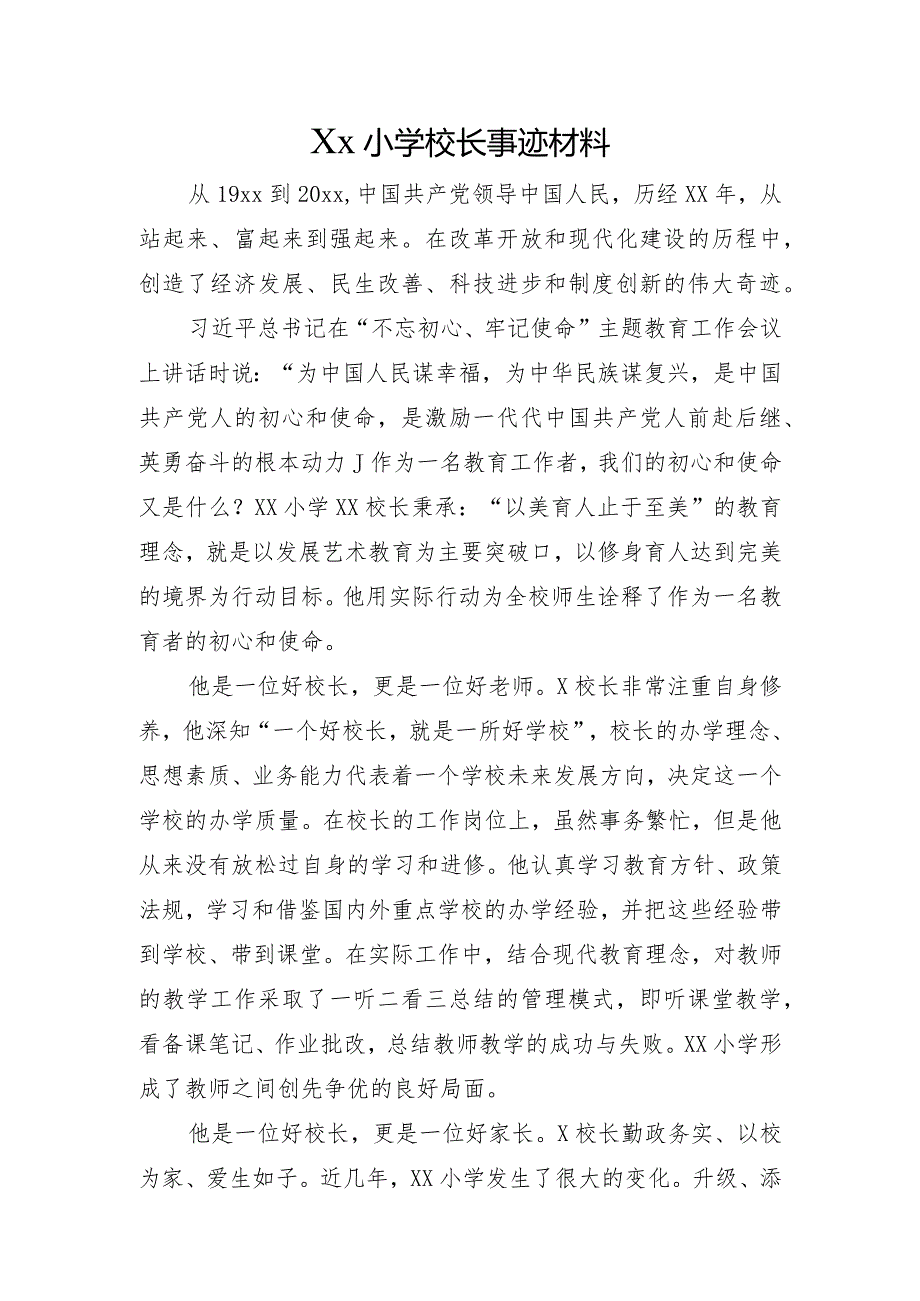 Xx小学校长事迹材料
从19xx到20xx,中国共产党领导中国人民，历经XX年，从
站起来、富起来到强起来。在改革开放和现代化建设的历程中，
创造了经济发展、民生改善、科技进步和制度创新的伟大奇迹。
习近平总书记在“不忘初心、牢记使命”主题教育工作会议
上讲话时说：“为中国人民谋幸福，为中华民族谋复兴，是中国
共产党人的初心和使命，是激励一代代中国共产党人前赴后继、
英勇奋斗的根本动力J作为一名教育工作者，我们的初心和使命
又是什么？XX小学XX校长秉承：“以美育人止于至美”的教育
理念，就是以发展艺术教育为主要突破口，以修身育人达到完美
的境界为行动目标。他用实际行动为全校师生诠释了作为一名教
育者的初心和使命。
他是一位好校长，更是一位好老师。X校长非常注重自身修
养，他深知“一个好校长，就是一所好学校”，校长的办学理念、
思想素质、业务能力代表着一个学校未来发展方向，决定这一个
学校的办学质量。在校长的工作岗位上，虽然事务繁忙，但是他
从来没有放松过自身的学习和进修。他认真学习教育方针、政策
法规，学习和借鉴国内外重点学校的办学经验，并把这些经验带
到学校、带到课堂。在实际工作中，结合现代教育理念，对教师
的教学工作采取了一听二看三总结的管理模式，即听课堂教学，
看备课笔记、作业批改，总结教师教学的成功与失败。XX小学形
成了教师之间创先争优的良好局面。
他是一位好校长，更是一位好家长。X校长勤政务实、以校
为家、爱生如子。近几年，XX小学发生了很大的变化。升级、添